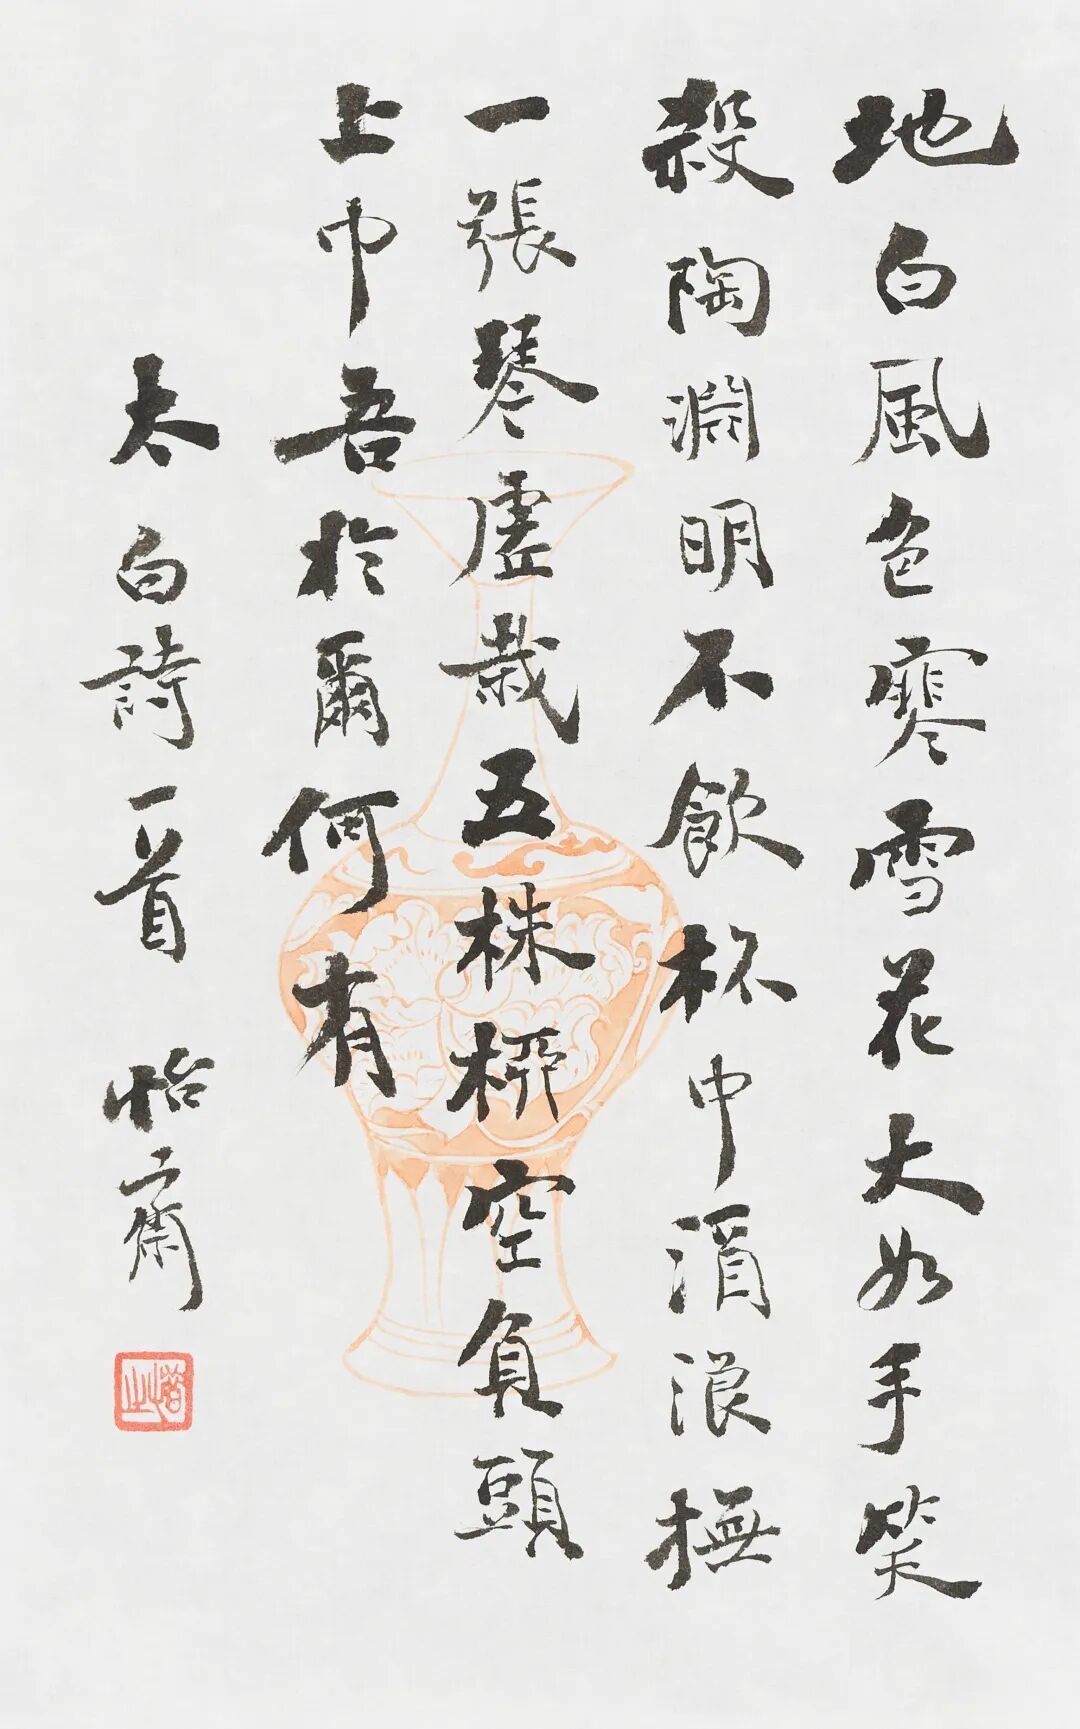 地白風色寒雪花大如手笑
殺陶淵明不飲杯中酒浪撫
一張琴虛栽五株柳空負頭
上巾吾於爾何有
太白詩一首 怡齋